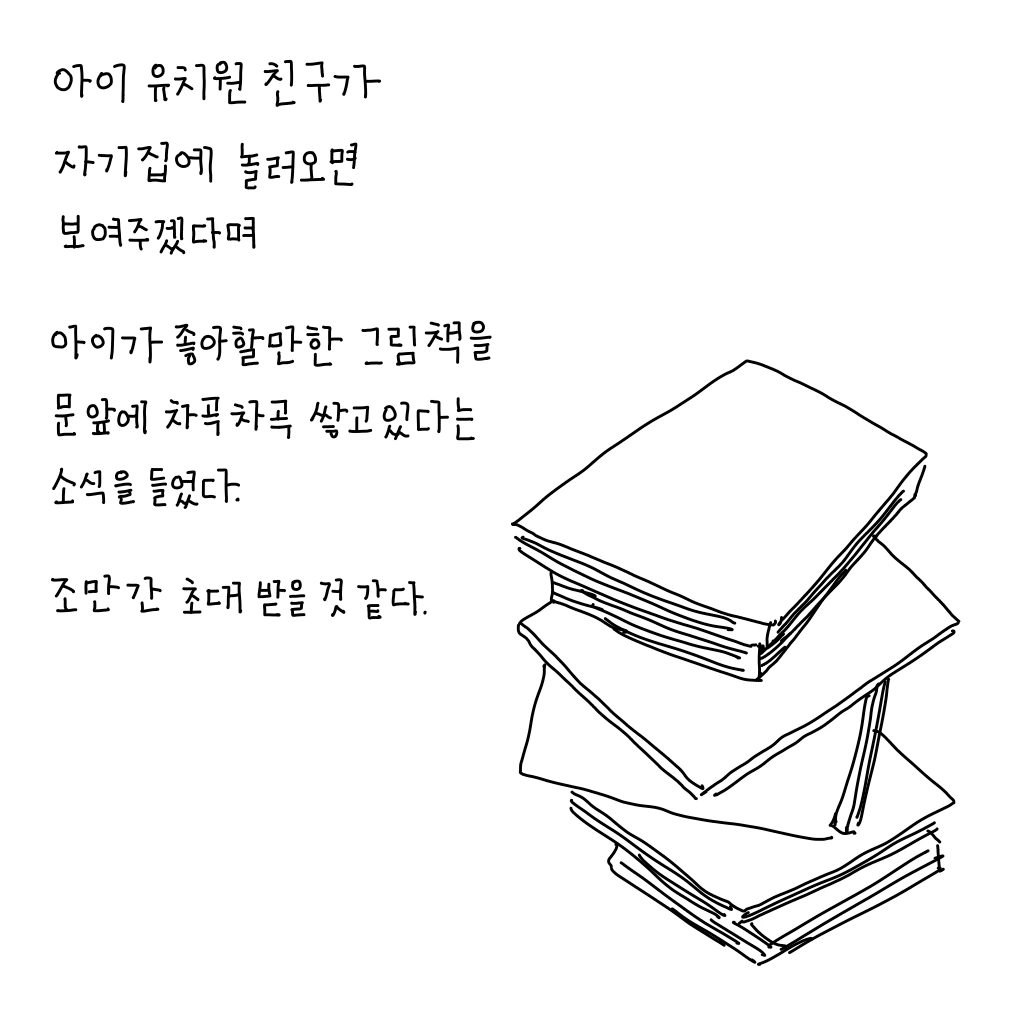 아이 유치원 친구가
자기집에 놀러오면
보여주겠다며
아이가 좋아할만한 그림책을
문앞에 차곡차곡 쌓고있다는
소식을 들었다.
조만간 초대 받을 것 같다.